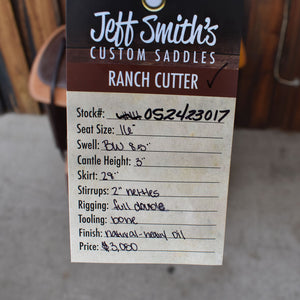 Jeff Smith's
CUSTOM SADDLES
RANCH CUTTER ✓
Stock#: 0524/23017
Seat Size: 16"
Swell: BW 8.5"
Cantle Height: 3"
Skirt: 29"
Stirrups: 2" nettles
Rigging: full double
Tooling: bone
Finish: natural-heavy oil
Price: $3,050